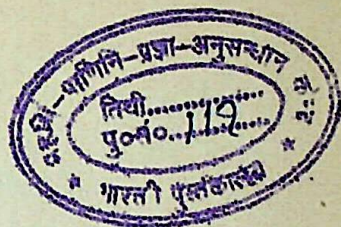 महर्षि-पाणिनि-प्रज्ञा-अनुसन्धान
तिथी..................
पु०नं०...112.........
* भारती पुस्तकालय *